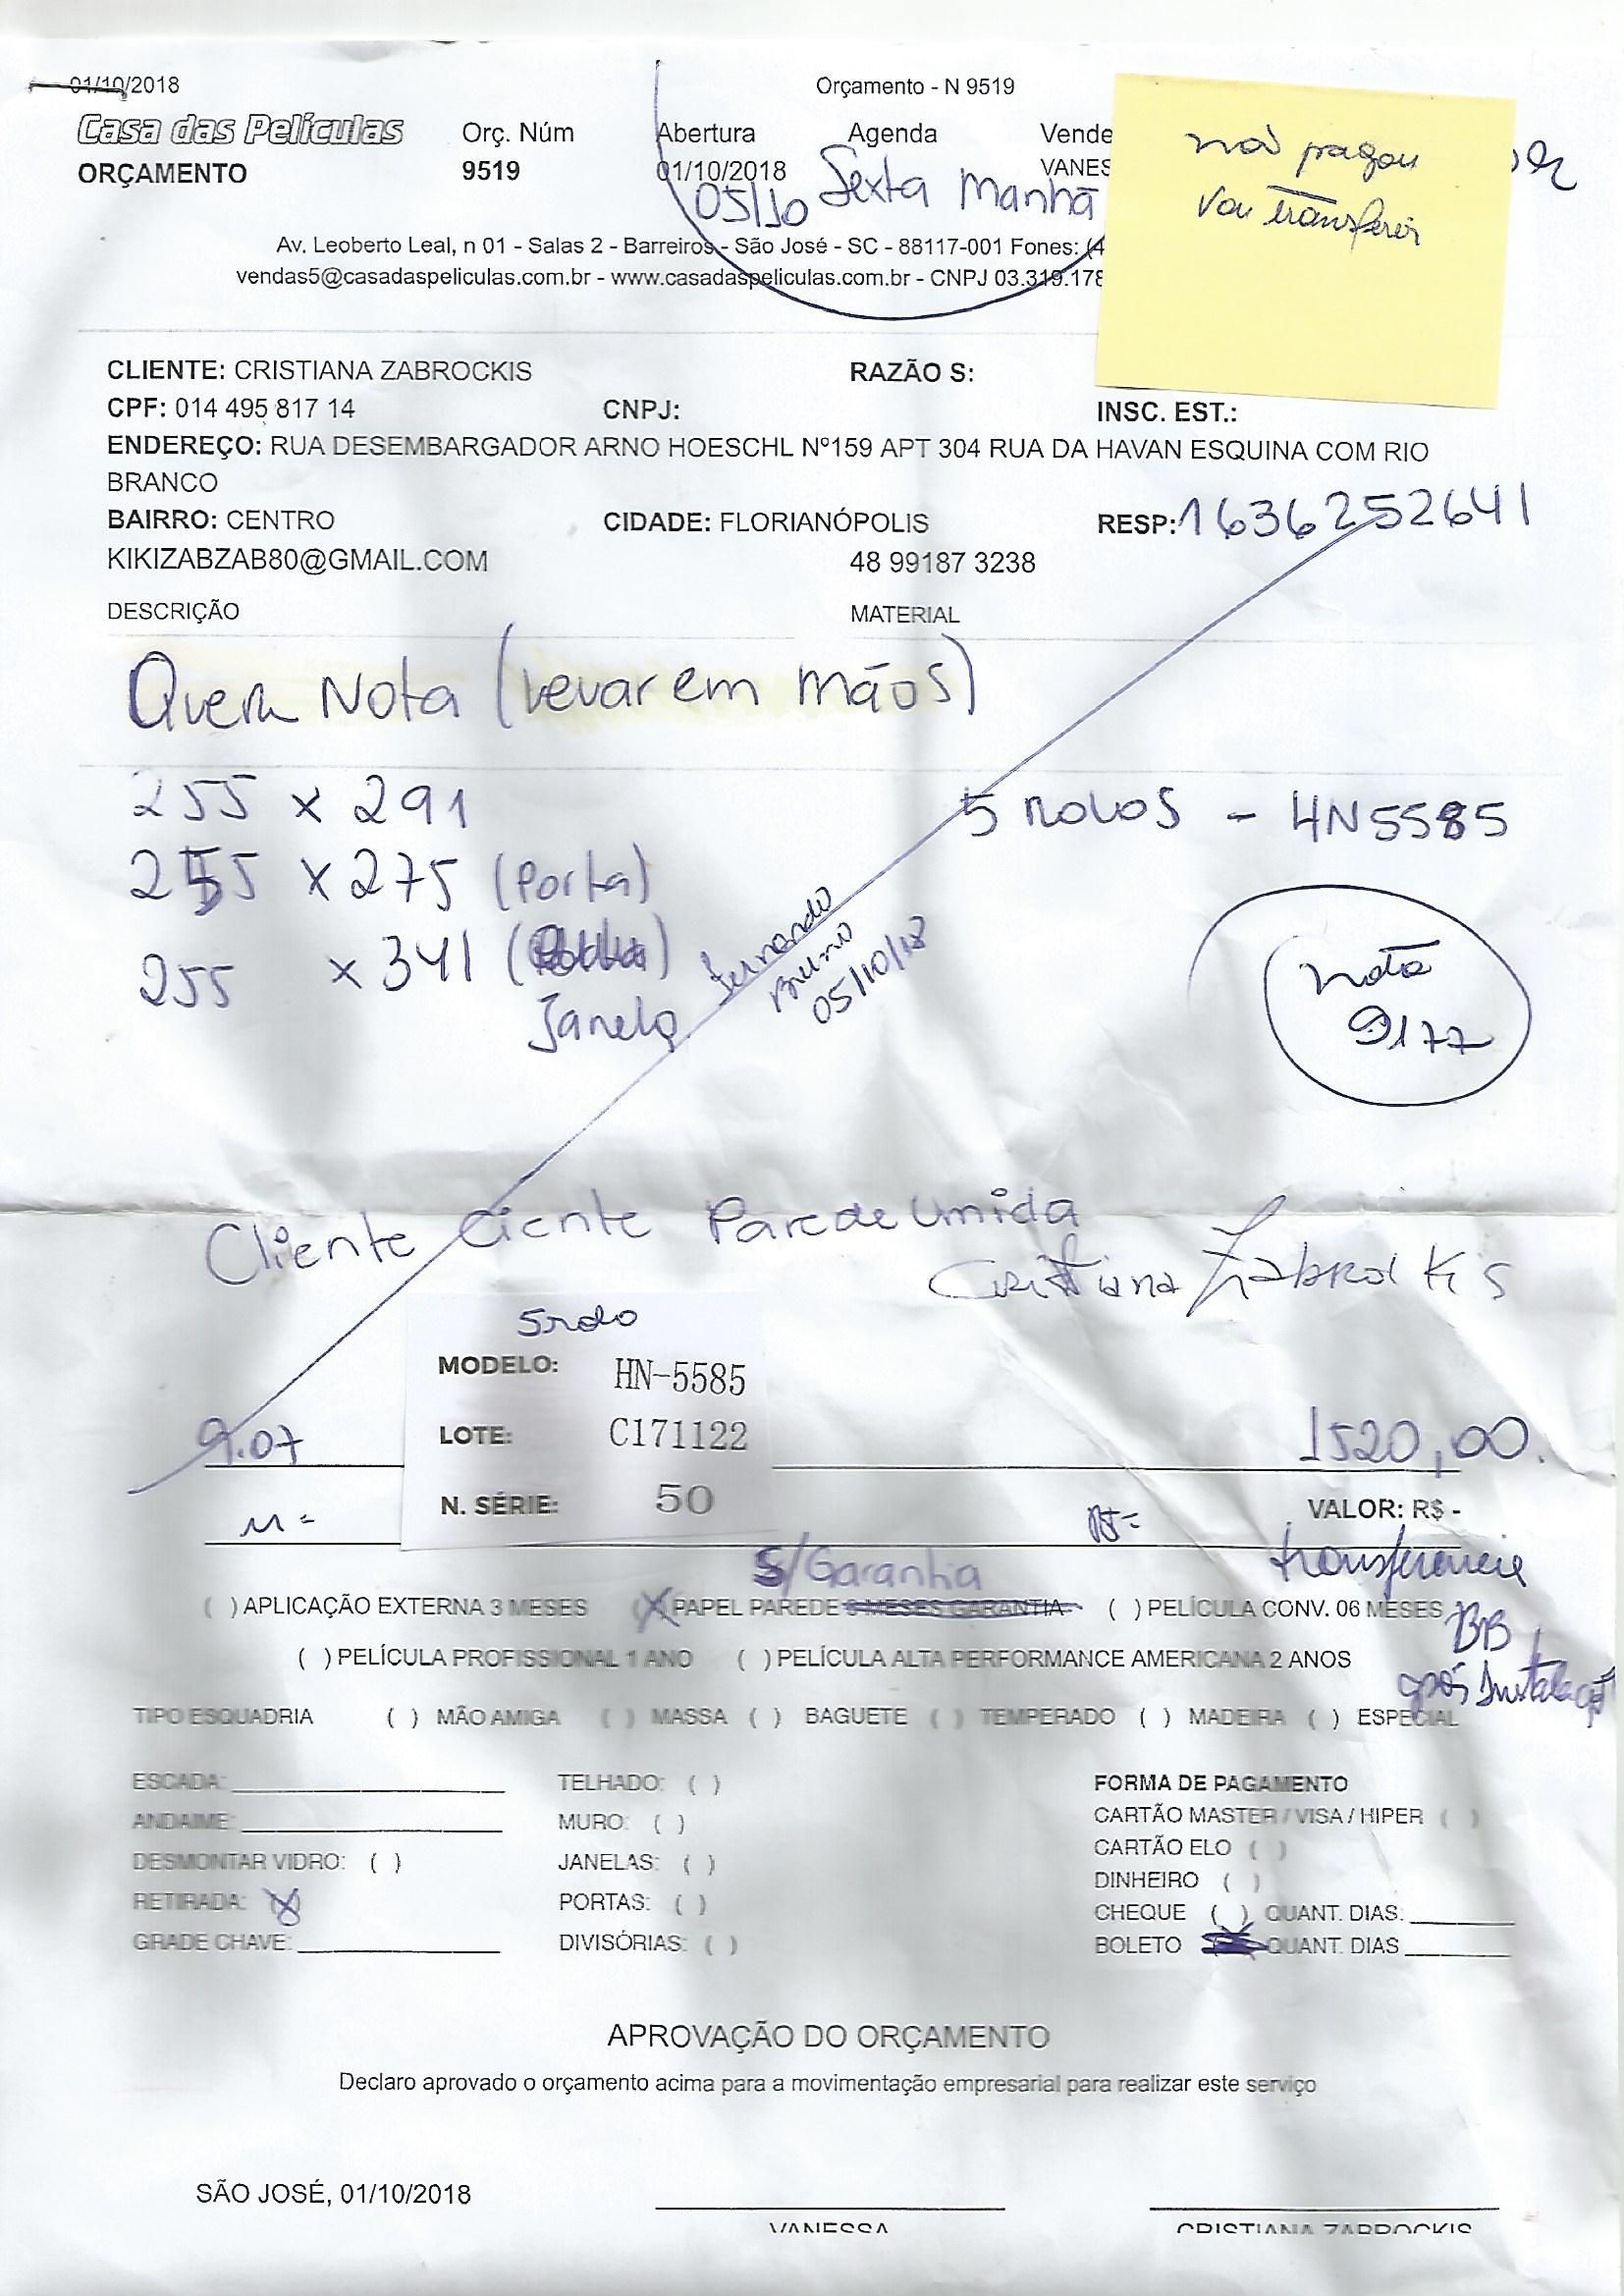 01/10/2018 Orçamento - N 9519
Casa das Películas Orç. Núm Abertura Agenda Vende
ORÇAMENTO 9519 01/10/2018 VANES
05/10 Sexta Manhã
não pagou
vou transferir
Av. Leoberto Leal, n 01 - Salas 2 - Barreiros - São José - SC - 88117-001 Fones: (4
vendas5@casadaspeliculas.com.br - www.casadaspeliculas.com.br - CNPJ 03.319.178
CLIENTE: CRISTIANA ZABROCKIS RAZÃO S:
CPF: 014 495 817 14 CNPJ: INSC. EST.:
ENDEREÇO: RUA DESEMBARGADOR ARNO HOESCHL Nº159 APT 304 RUA DA HAVAN ESQUINA COM RIO
BRANCO
BAIRRO: CENTRO CIDADE: FLORIANÓPOLIS RESP: 1636252641
KIKIZABZAB80@GMAIL.COM 48 99187 3238
DESCRIÇÃO MATERIAL
Quer Nota (levar em mãos)
255 x 291 5 rolos - HN5585
255 x 275 (Porta)
255 x 341
Janela
Fernando
Bruno
05/10/18
nota
9177
Cliente Ciente Parede Umida
Cristiana Zabrockis
MODELO: HN-5585
LOTE: C171122
N. SÉRIE: 50
9.07 1520,00.
M= VALOR: R$ -
S/Garantia transferencia
( ) APLICAÇÃO EXTERNA 3 MESES (X) PAPEL PAREDE 3 MESES GARANTIA ( ) PELÍCULA CONV. 06 MESES
BB
após Instalação
( ) PELÍCULA PROFISSIONAL 1 ANO ( ) PELÍCULA ALTA PERFORMANCE AMERICANA 2 ANOS
TIPO ESQUADRIA ( ) MÃO AMIGA ( ) MASSA ( ) BAGUETE ( ) TEMPERADO ( ) MADEIRA ( ) ESPECIAL
ESCADA: TELHADO: ( ) FORMA DE PAGAMENTO
ANDAIME: MURO: ( ) CARTÃO MASTER / VISA / HIPER ( )
DESMONTAR VIDRO: ( ) JANELAS: ( ) CARTÃO ELO ( )
RETIRADA: (X) PORTAS: ( ) DINHEIRO ( )
GRADE CHAVE: DIVISÓRIAS: ( ) CHEQUE ( ) QUANT. DIAS:
BOLETO QUANT. DIAS
APROVAÇÃO DO ORÇAMENTO
Declaro aprovado o orçamento acima para a movimentação empresarial para realizar este serviço
SÃO JOSÉ, 01/10/2018
VANESSA CRISTIANA ZABROCKIS